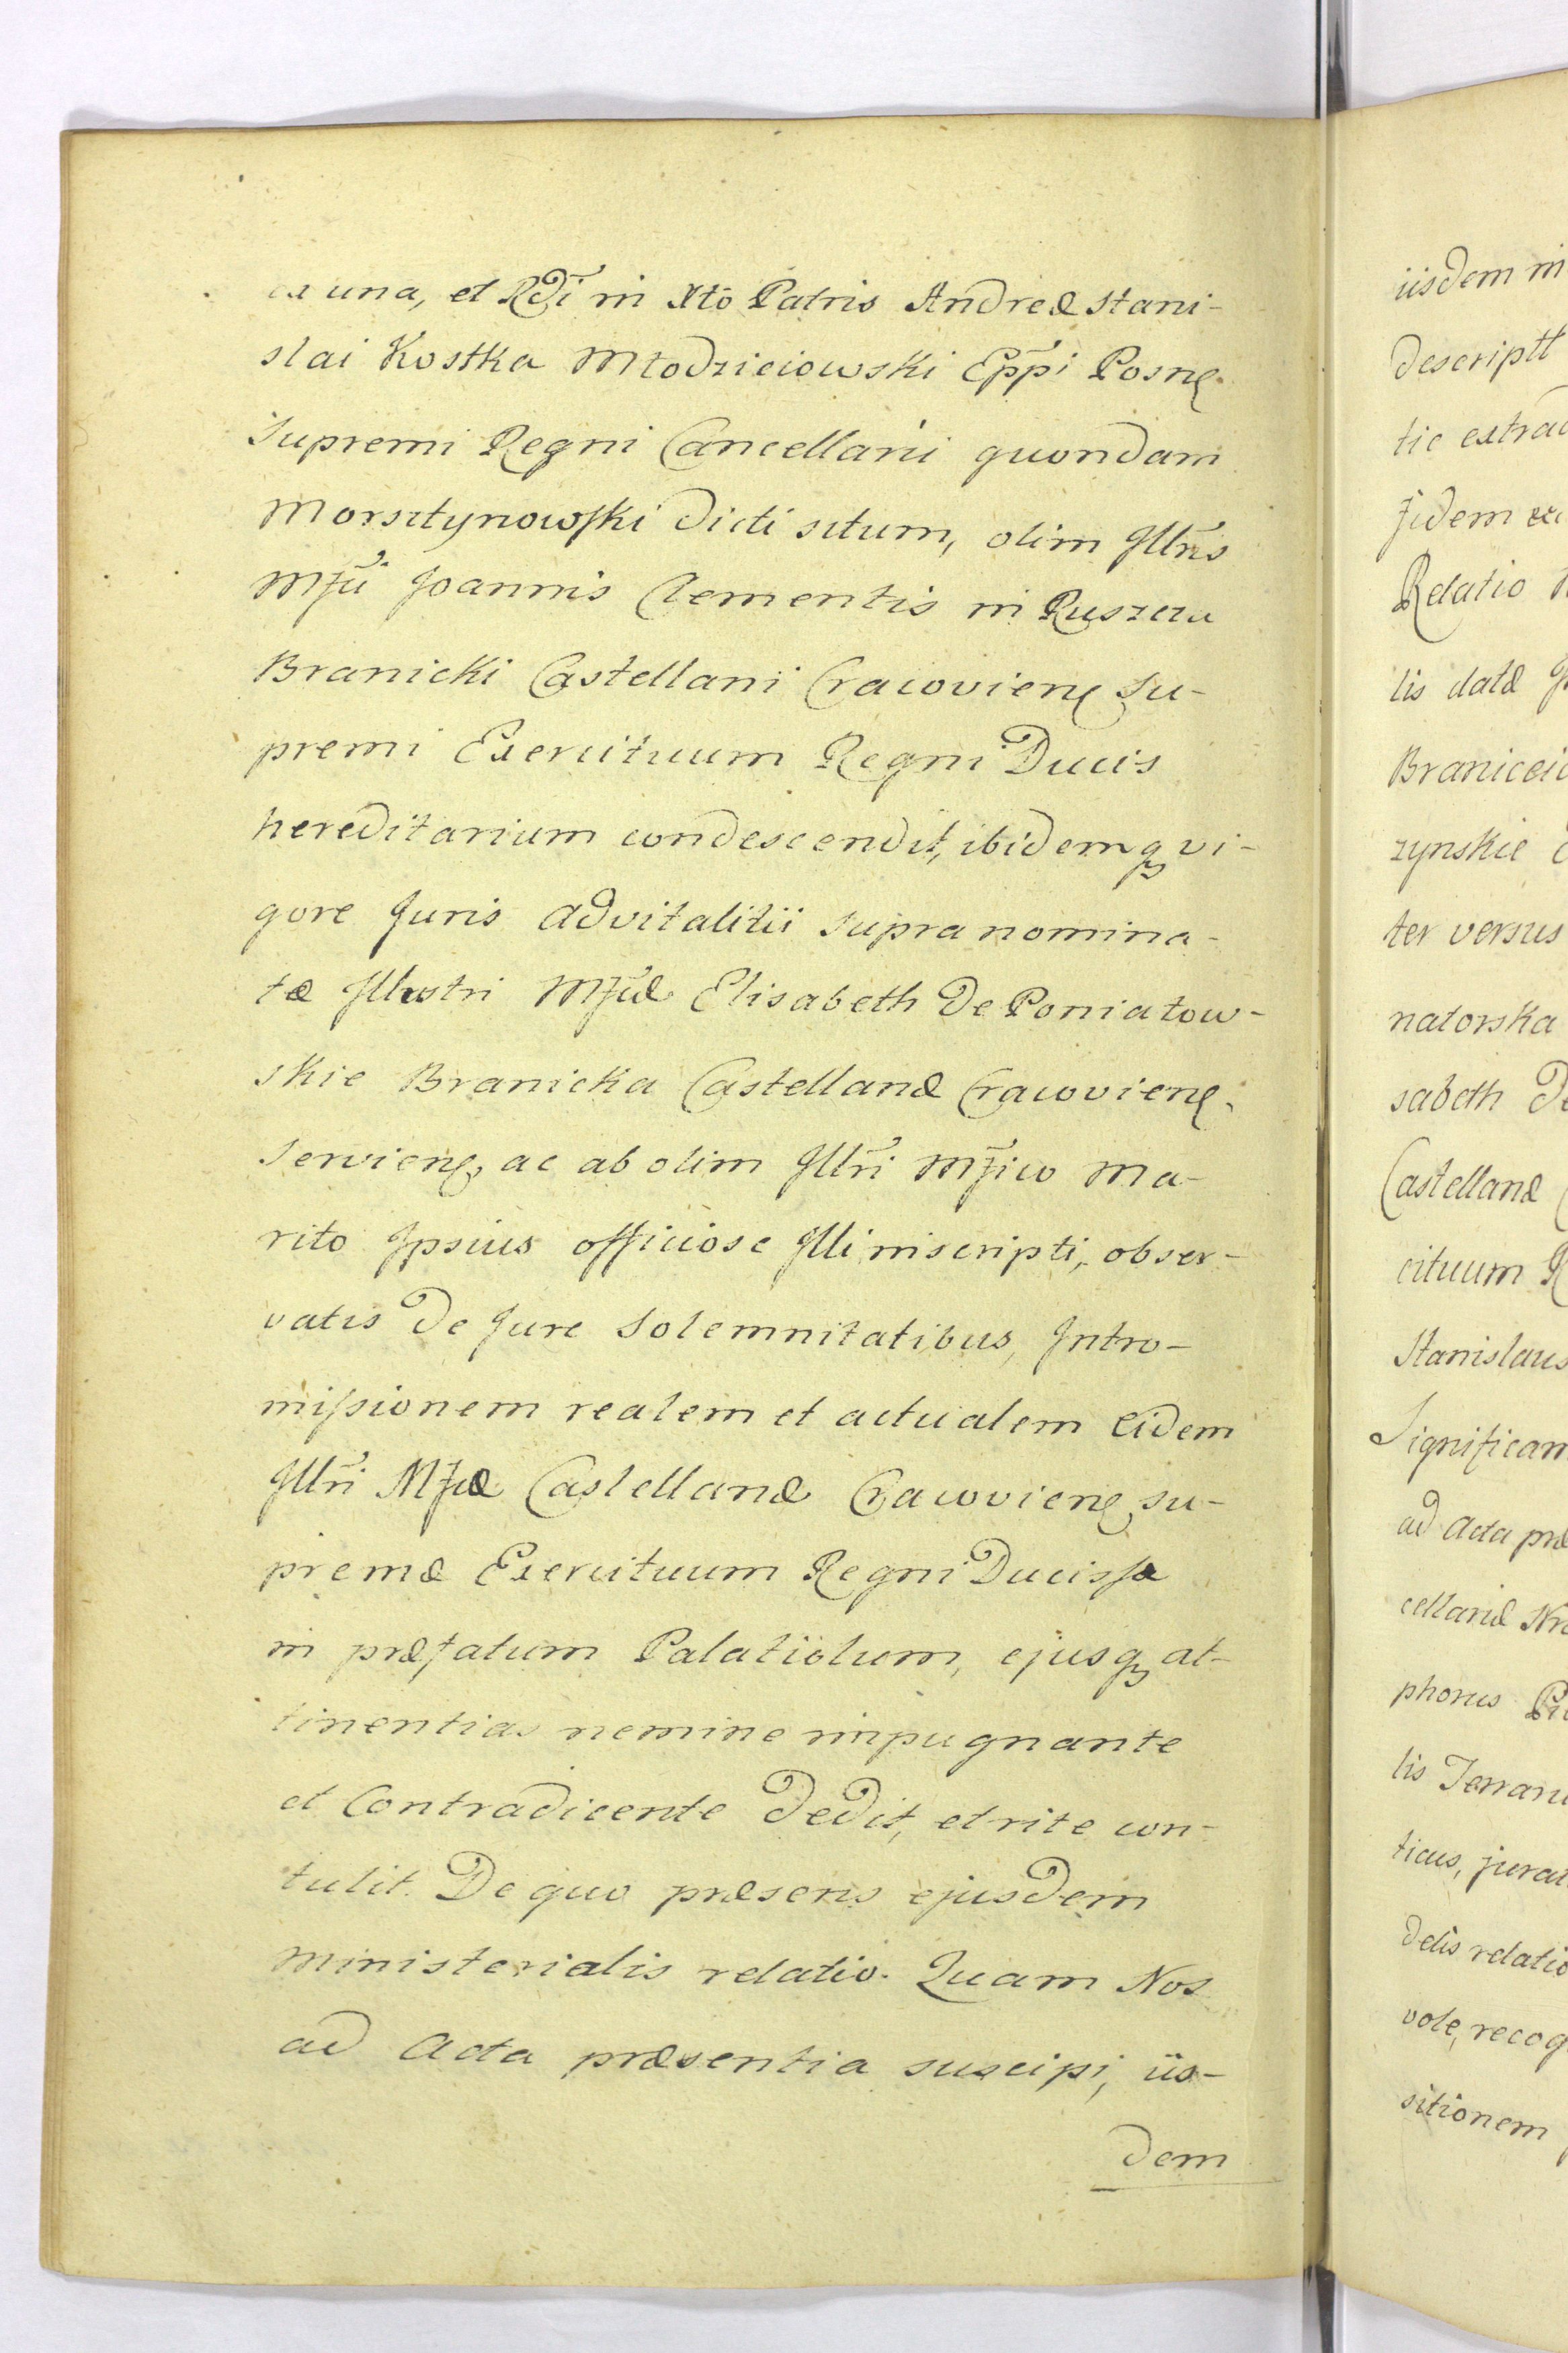 ex una, et Rdi in Xto Patris Andreæ Stani-
slai Kostka Młodzieiowski Eppi Posnę
Supremi Regni Cancellarii quondam
Morsztynowski dicti situm, olim Jllris
Mfci Joannis Clementis in Ruszcza
Branicki Castellani Cracovienę Su-
premi Exercituum Regni Ducis
hereditarium condescendit, ibidemq vi-
gore Juris advitalitii supra nomina-
tæ Jllustri Mfcæ Elisabeth de Poniatow-
skie Branicka Castellanæ Cracovienę,
Servienę, ac ab olim Jllri Mfico Ma-
rito Jpsius officiose Jlli inscripti, obser-
vatis de Jure Solemnitatibus, Jntro-
missionem realem et actualem Eidem
Jllri Mfcæ Castellanæ Cracovienę su-
premæ Exercituum Regni Ducissæ
in præfatum Palatiolum, ejusq at-
tinentias nemine impugnante
et Contradicente dedit, et rite con-
tulit. De quo præsens ejusdem
Ministerialis relatio. Quam Nos
ad Acta præsentia suscipi, iis-
dem
iisdem in
descriptt
tic
fidem
Relatio
lis datæ
zynskie
ter versus
natorska
sabeth
Castellanæ
cituum
Stanislaus
ad Acta
cellariæ
phorus
lis
ticus,
delis relatio
sitionem